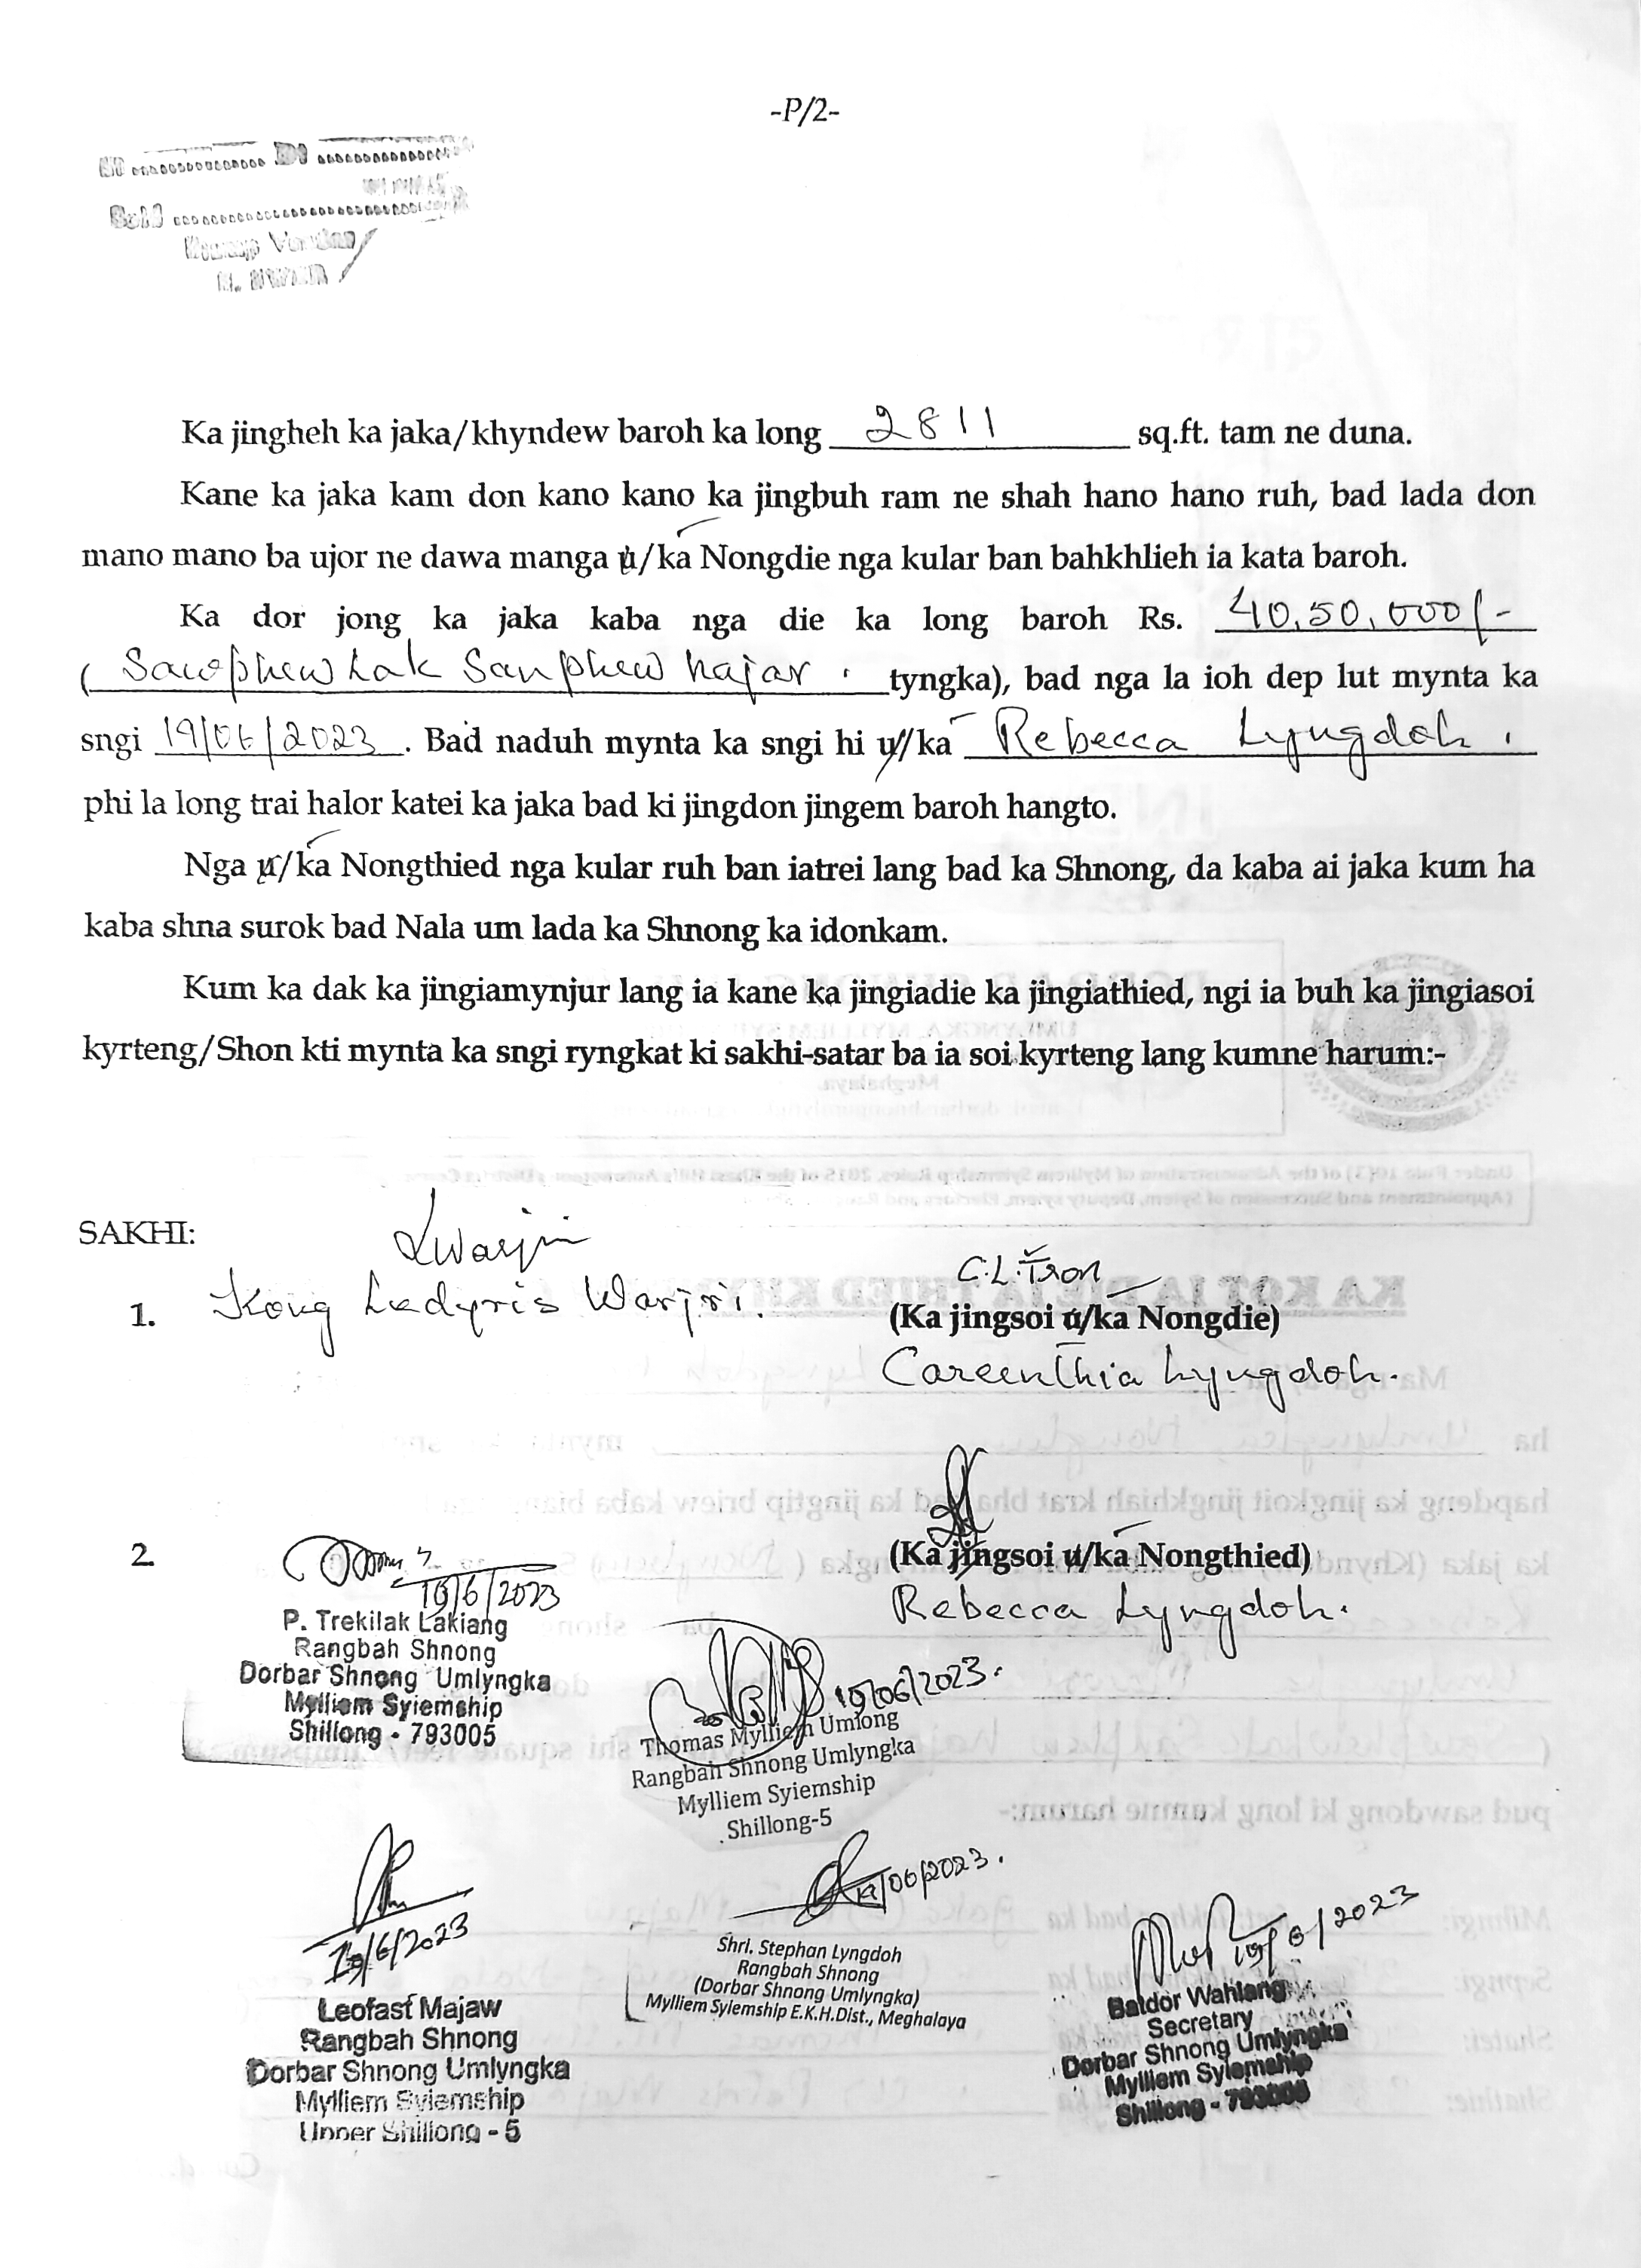 -P/2-
Ka jingheh ka jaka/khyndew baroh ka long 2811 sq.ft. tam ne duna.
Kane ka jaka kam don kano kano ka jingbuh ram ne shah hano hano ruh, bad lada don
mano mano ba ujor ne dawa manga u/ka Nongdie nga kular ban bahkhlieh ia kata baroh.
Ka dor jong ka jaka kaba nga die ka long baroh Rs. 40,50,000/-
( Sawphew Lak Sanphew hajar tyngka), bad nga la ioh dep lut mynta ka
sngi 19/06/2023. Bad naduh mynta ka sngi hi u/ka Rebecca Lyngdoh.
phi la long trai halor katei ka jaka bad ki jingdon jingem baroh hangto.
Nga u/ka Nongthied nga kular ruh ban iatrei lang bad ka Shnong, da kaba ai jaka kum ha
kaba shna surok bad Nala um lada ka Shnong ka idonkam.
Kum ka dak ka jingiamynjur lang ia kane ka jingiadie ka jingiathied, ngi ia buh ka jingiasoi
kyrteng/Shon kti mynta ka sngi ryngkat ki sakhi-satar ba ia soi kyrteng lang kumne harum:-
SAKHI:
LWarjri
C.L.Iron
1. Kong Ladyris Warjri.
(Ka jingsoi u/ka Nongdie)
Careenthia Lyngdoh.
2.
(Ka jingsoi u/ka Nongthied)
Rebecca Lyngdoh.
19/6/2023
P. Trekilak Lakiang
Rangbah Shnong
Dorbar Shnong Umlyngka
Mylliem Syiemship
Shillong - 793005
19/06/2023.
Thomas Mylliem Umlong
Rangbah Shnong Umlyngka
Mylliem Syiemship
Shillong-5
19/6/2023
Leofast Majaw
Rangbah Shnong
Dorbar Shnong Umlyngka
Mylliem Syiemship
Upper Shillong - 5
19/06/2023.
Shri. Stephan Lyngdoh
Rangbah Shnong
(Dorbar Shnong Umlyngka)
Mylliem Syiemship E.K.H.Dist., Meghalaya
19/6/2023
Baldor Wahlang
Secretary
Dorbar Shnong Umlyngka
Mylliem Syiemship
Shillong - 793005